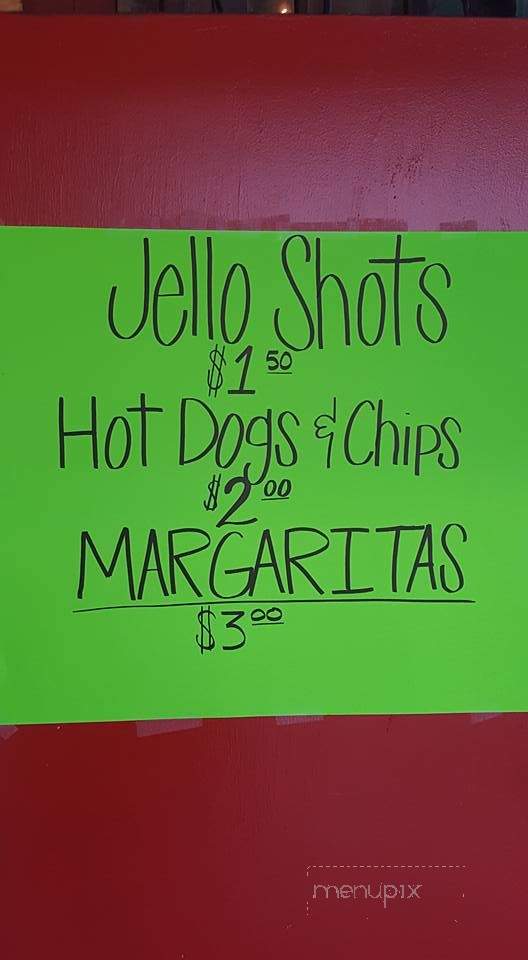 Jello Shots
$1 50
Hot Dogs & Chips
$2 00
MARGARITAS
$3 00
menupix